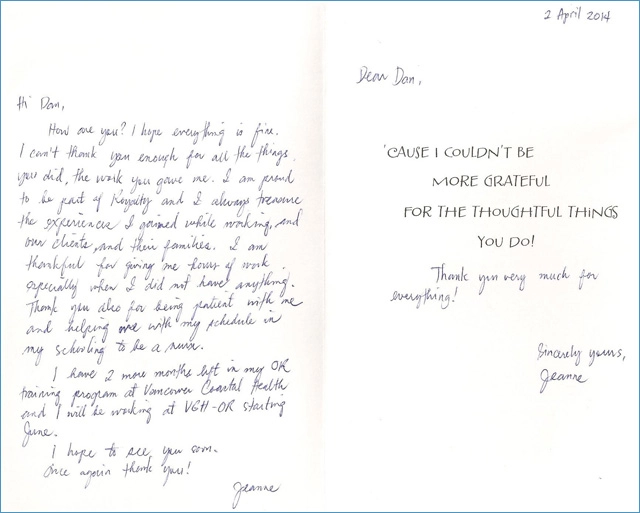 Hi Dan,
How are you? I hope everything is fine.
I can't thank you enough for all the things
you did, the work you gave me. I am proud
to be part of Royalty and I always treasure
the experiences I gained while working, and
our clients, and their families. I am
thankful for giving me hours of work
especially when I did not have anything.
Thank you also for being patient with me
and helping me with my schedule in
my schooling to be a nurse.
I have 2 more months left in my OR
training program at Vancouver Coastal Health
and I will be working at VGH-OR starting
June.
I hope to see you soon.
Once again thank you!
Jeanne
2 April 2014
Dear Dan,
'CAUSE I COULDN'T BE
MORE GRATEFUL
FOR THE THOUGHTFUL THINGS
YOU DO!
Thank you very much for
everything!
Sincerely yours,
Jeanne